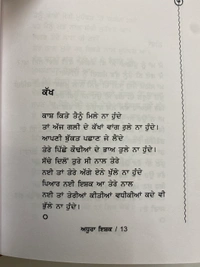 ਕੱਖ
ਕਾਸ਼ ਕਿਤੇ ਤੈਨੂੰ ਮਿਲੇ ਨਾ ਹੁੰਦੇ
ਤਾਂ ਅੱਜ ਗਲੀ ਦੇ ਕੱਖਾਂ ਵਾਂਗ ਰੁਲੇ ਨਾ ਹੁੰਦੇ।
ਆਪਣੀ ਬੁੱਕਤ ਪਛਾਣ ਜੇ ਲੈਂਦੇ
ਤੇਰੇ ਪਿੱਛੇ ਕੌਢੀਆਂ ਦੇ ਭਾਅ ਤੁਲੇ ਨਾ ਹੁੰਦੇ।
ਸੱਚੇ ਦਿਲੋਂ ਤੁਰੇ ਸੀ ਨਾਲ ਤੇਰੇ
ਨਈ ਤਾਂ ਤੇਰੇ ਅੱਗੇ ਏਨੇ ਖੁੱਲੇ ਨਾ ਹੁੰਦੇ
ਪਿਆਰ ਨਈ ਇਸ਼ਕ ਆ ਤੇਰੇ ਨਾਲ
ਨਈ ਤਾਂ ਤੇਰੀਆਂ ਕੀਤੀਆਂ ਵਧੀਕੀਆਂ ਕਦੇ ਵੀ
ਭੁੱਲੇ ਨਾ ਹੁੰਦੇ।
ਅਧੂਰਾ ਇਸ਼ਕ / 13